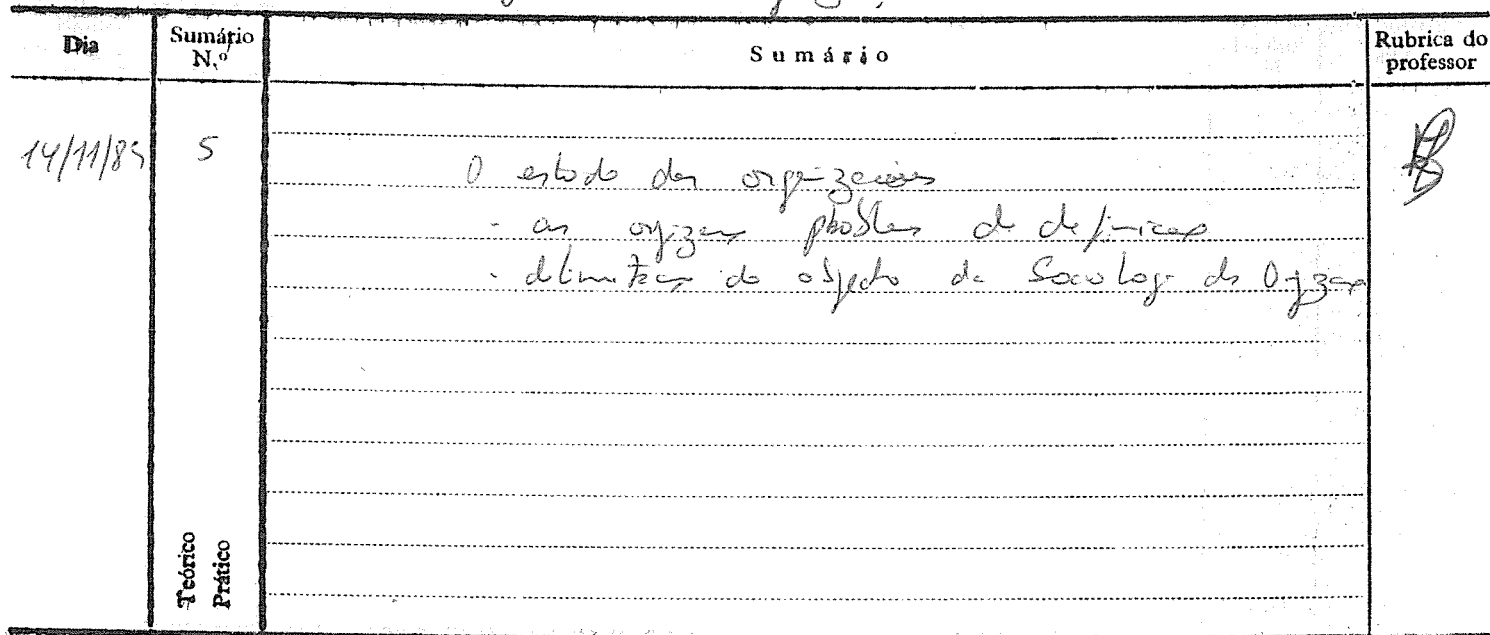 Dia
Sumário N.º
Sumário
Rubrica do professor
14/11/85
5
O estudo das organizações
- as organizações problemas de definição
- delimitação do objecto da Sociologia das Organizações
Teórico
Prático